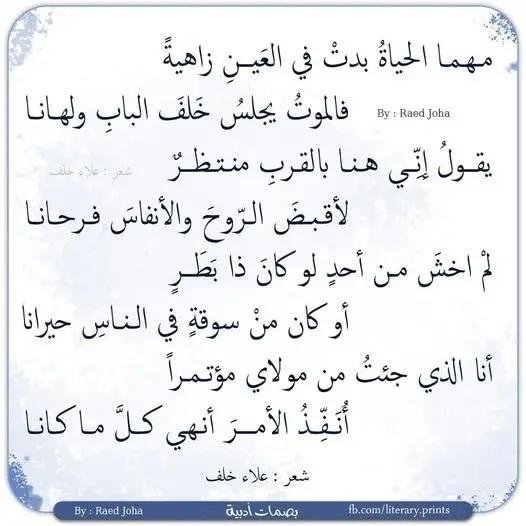 مهما الحياةُ بدتْ في العَيـنِ زاهيةً
فالموتُ يجلسُ خَلفَ البابِ ولهانا
By : Raed Joha
يقولُ إنّي هنا بالقربِ منتظرٌ
شعر : علاء خلف
لأقبضَ الرّوحَ والأنفاسَ فرحانا
لمْ اخشَ من أحدٍ لو كانَ ذا بَطَرٍ
أو كان منْ سوقةٍ في الناسِ حيرانا
أنا الذي جئتُ من مولاي مؤتمراً
أُنَفِّذُ الأمرَ أنهي كلَّ ما كانا
شعر : علاء خلف
By : Raed Joha بصمات أدبية fb.com/literary.prints